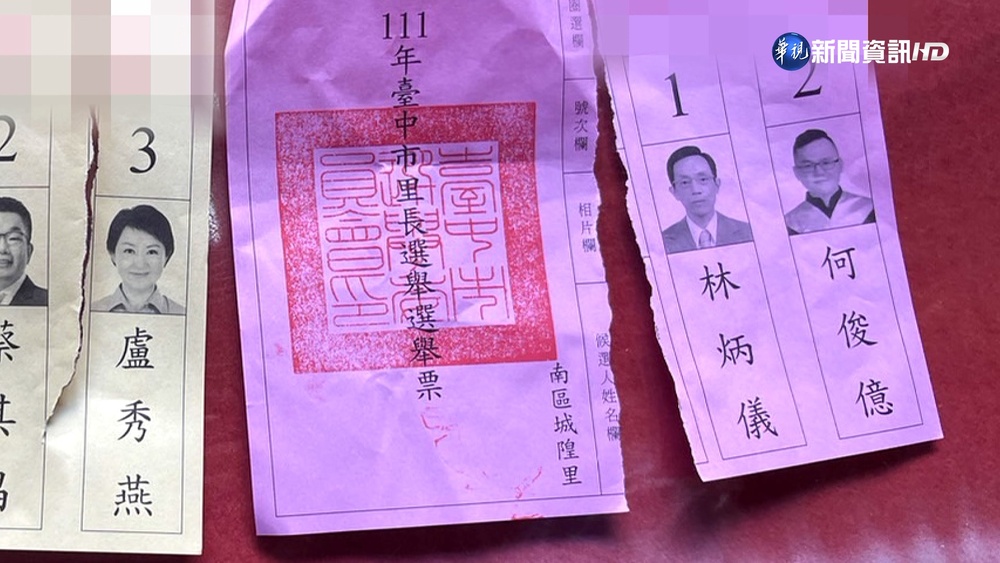 華視 新聞資訊HD
2
蔡
其
昌
3
盧秀燕
111年臺中市里長選舉選舉票
臺中市選舉委員會印
南區城隍里
圈選欄
號次欄
相片欄
候選人姓名欄
1
林炳儀
2
何俊億